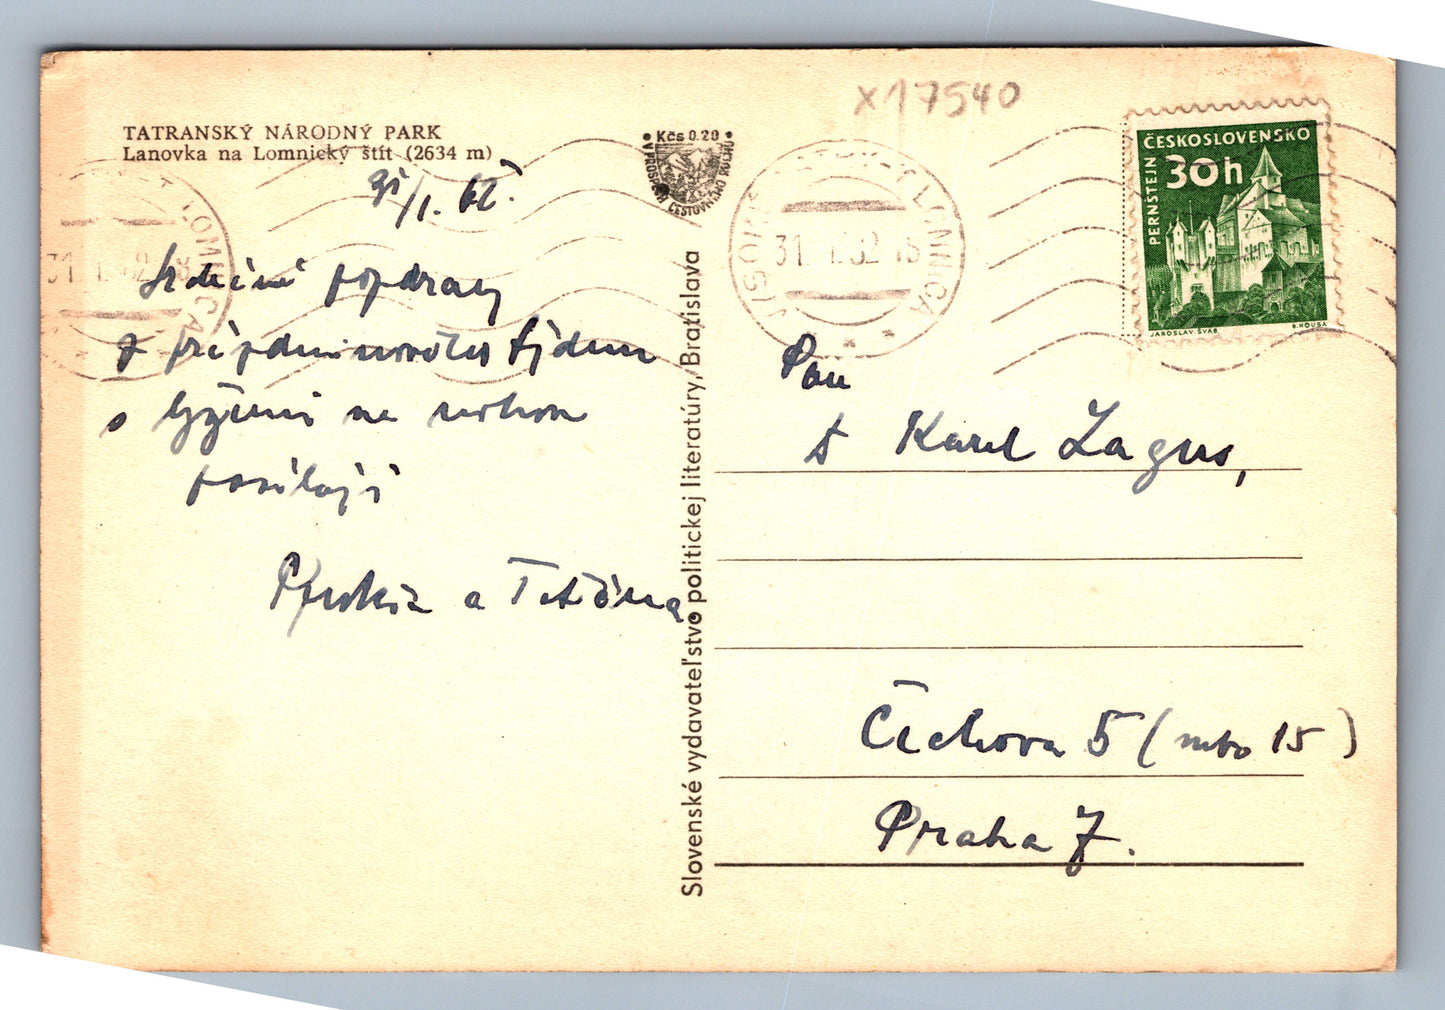 TATRANSKÝ NÁRODNÝ PARK
Lanovka na Lomnický štít (2634 m)
31/1. 62.
Srdečné pozdravy
z předminovčes týdnu
s lyžemi na nohou
posílají
a Taťána
Kčs 0.20
V PROSPECH CESTOVNÉHO RUCHU
Slovenské vydavateľstvo politickej literatúry, Bratislava
X17540
VYSOKÉ TATRY-T. LOMNICA
31.1.62.-18
ČESKOSLOVENSKO
30h
PERNŠTEJN
JAROSLAV ŠVÁB
B. HOUSA
Pan
Karel Lagus,
Čechova 5 (nebo 15)
Praha 7.